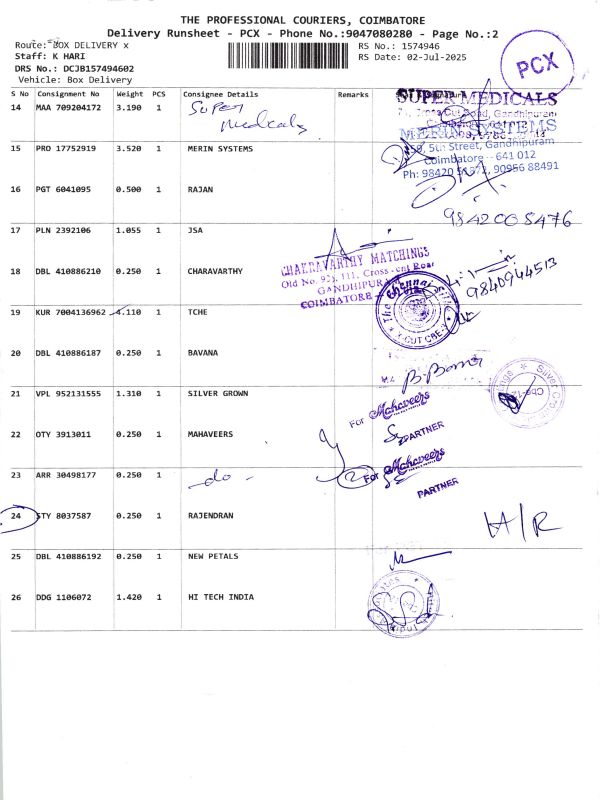 THE PROFESSIONAL COURIERS, COIMBATORE
Delivery Runsheet - PCX - Phone No.:9047080280 - Page No.:2
Route: BOX DELIVERY x
Staff: K HARI
DRS No.: DCJB157494602
Vehicle: Box Delivery
RS No.: 1574946
RS Date: 02-Jul-2025
PCX
S No Consignment No Weight PCS Consignee Details Remarks
14 MAA 709204172 3.190 1 Super Medicals
SUPER MEDICALS
Cross Cut Road, Gandhipuram
15 PRO 17752919 3.520 1 MERIN SYSTEMS
MERIN SYSTEMS
5th Street, Gandhipuram
Coimbatore - 641 012
Ph: 98420 51572, 90956 88491
16 PGT 6041095 0.500 1 RAJAN
9842008476
17 PLN 2392106 1.055 1 JSA
18 DBL 410886210 0.250 1 CHARAVARTHY
CHAKRAVARTHY MATCHINGS
Old No. 111, Cross Cut Road
GANDHIPURAM
COIMBATORE
9840944513
19 KUR 7004136962 4.110 1 TCHE
The Chennai
X-CUT CBE
20 DBL 410886187 0.250 1 BAVANA
21 VPL 952131555 1.310 1 SILVER GROWN
Silver Crown
22 OTY 3913011 0.250 1 MAHAVEERS
For Mahaveers
PARTNER
23 ARR 30498177 0.250 1 -do-
2
For Mahaveers
PARTNER
24 STY 8037587 0.250 1 RAJENDRAN
H/R
25 DBL 410886192 0.250 1 NEW PETALS
26 DDG 1106072 1.420 1 HI TECH INDIA